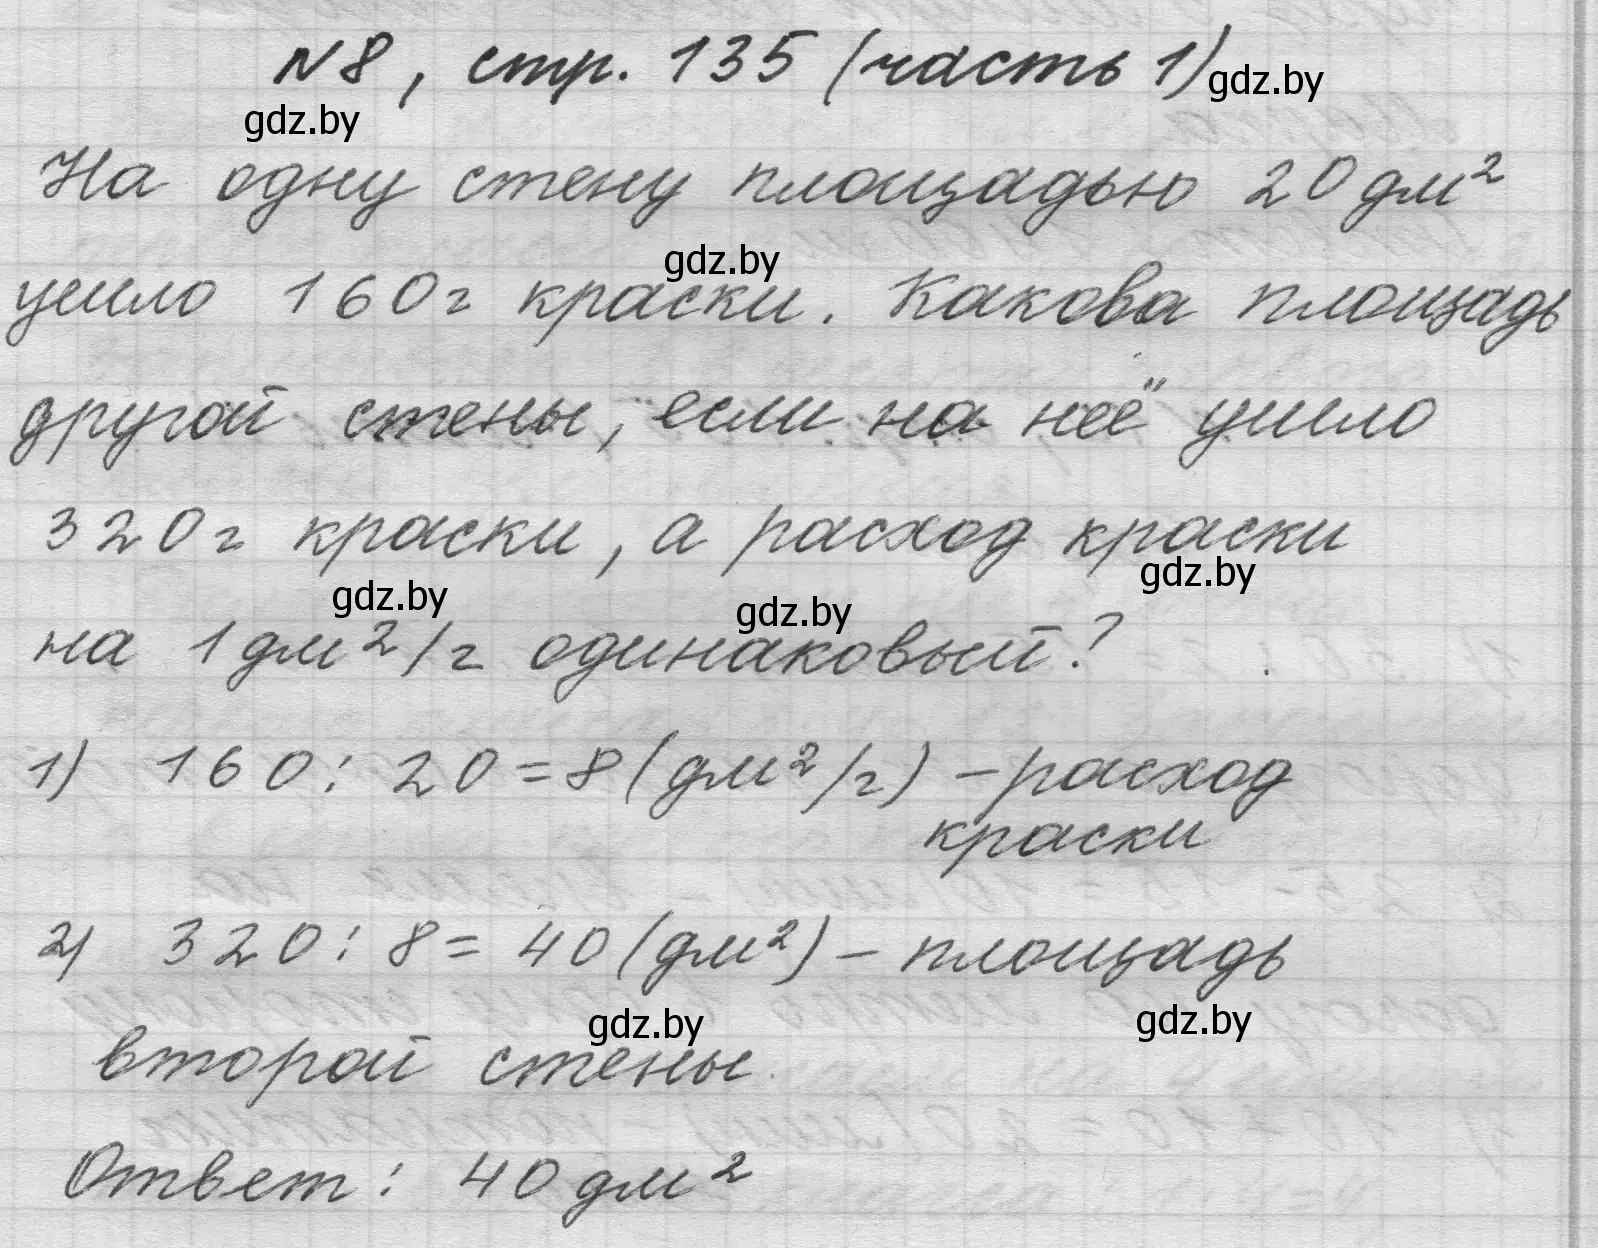 N8, стр. 135 (часть 1) gdz.by
gdz.by
На одну стену площадью 20 дм²
gdz.by
ушло 160 г краски. Какова площадь
другой стены, если на неё ушло
320 г краски, а расход краски
gdz.by gdz.by gdz.by
на 1 дм²/г одинаковый?
1) 160 : 20 = 8 (дм²/г) – расход
краски
2) 320 : 8 = 40 (дм²) – площадь
gdz.by gdz.by
второй стены.
Ответ: 40 дм²